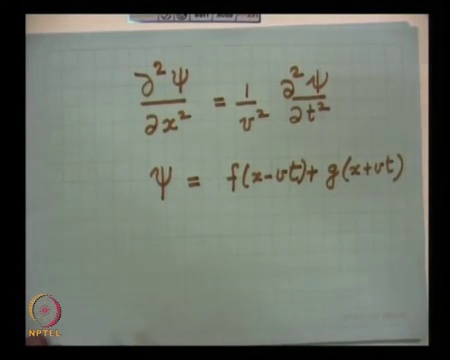 ∂²ψ/∂x² = 1/v² ∂²ψ/∂t²
ψ = f(x-vt) + g(x+vt)
NPTEL